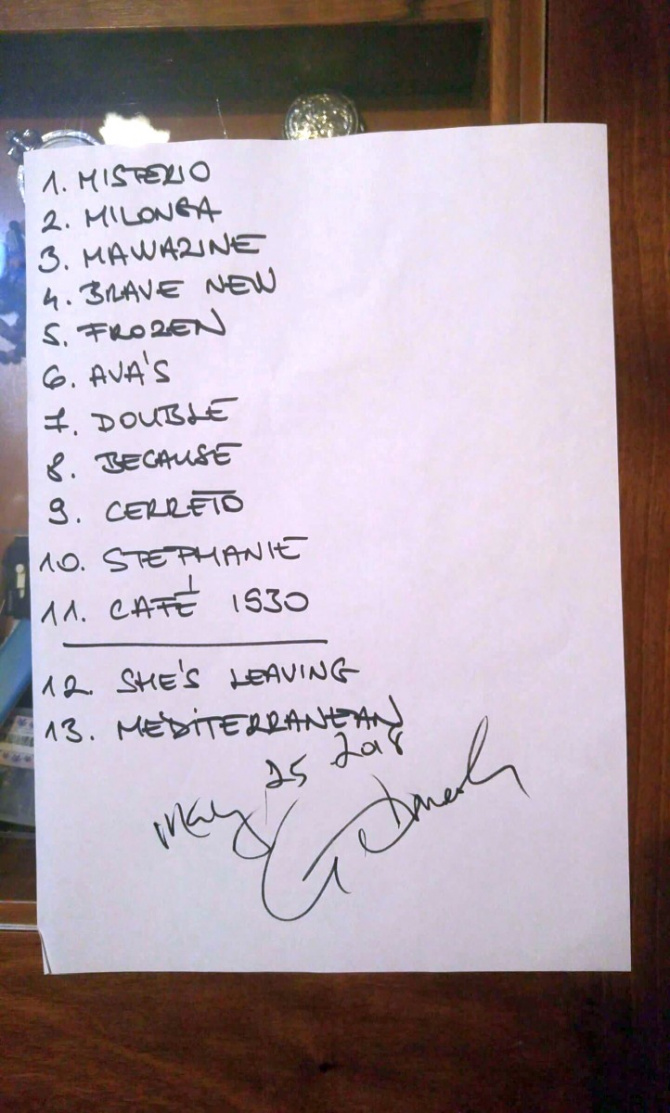 1. MISTERIO
2. MILONGA
3. MAWAZINE
4. BRAVE NEW
5. FROZEN
6. AVA'S
7. DOUBLE
8. BECAUSE
9. CERRETO
10. STEPHANIE
11. CAFÉ 1930
12. SHE'S LEAVING
13. MEDITERRANEAN
May 25 2018